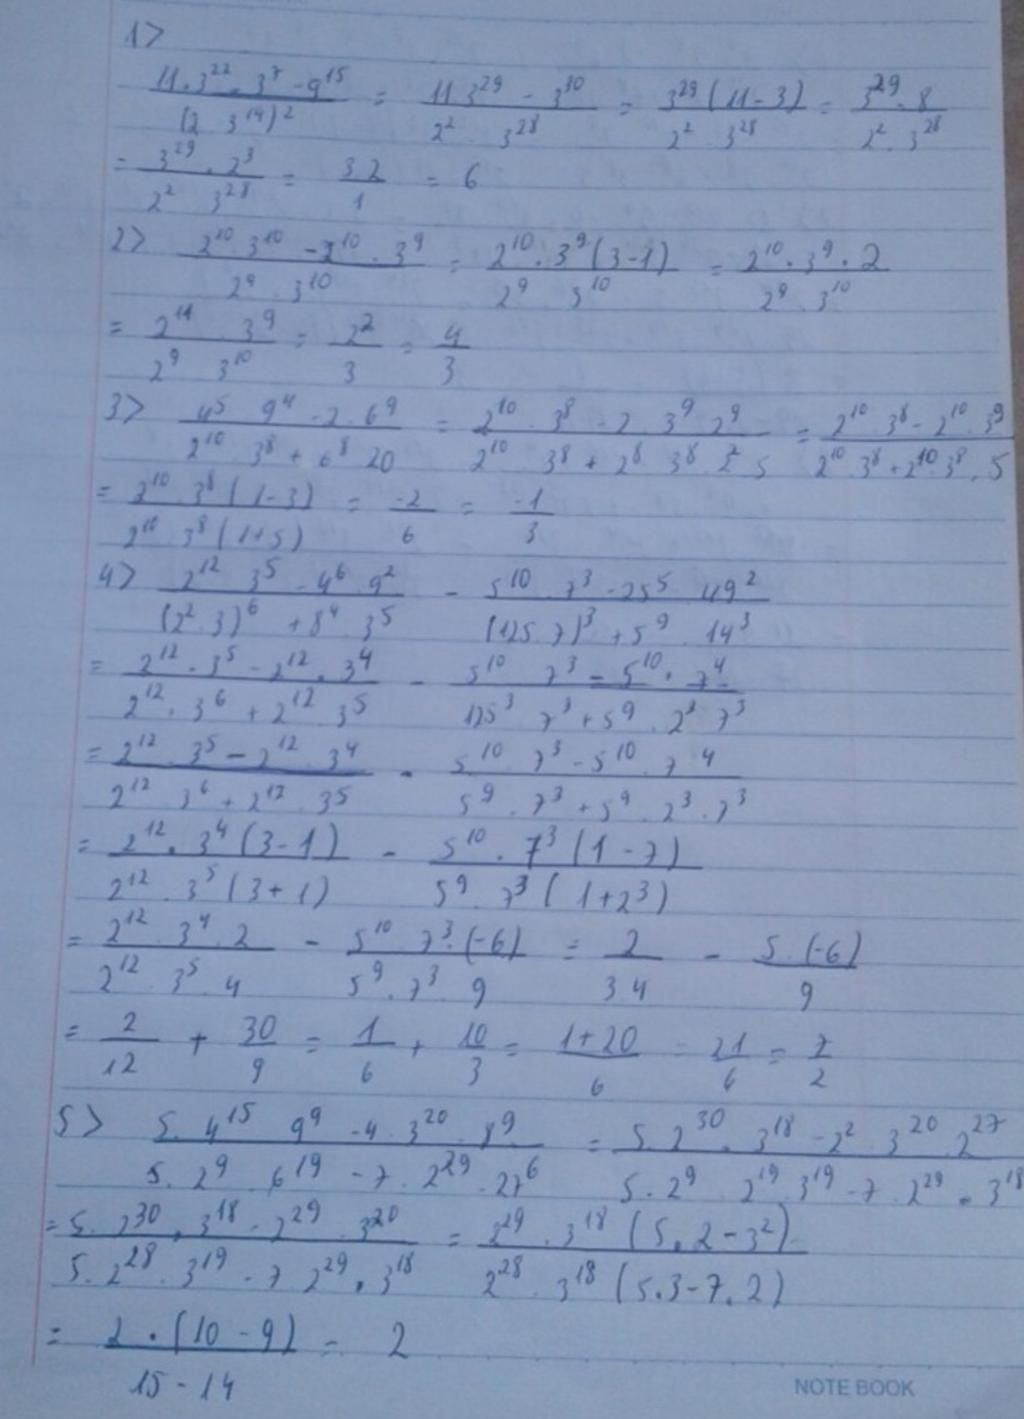 1>
\frac{11 \cdot 3^{22} \cdot 3^7 - 9^{15}}{(2 \cdot 3^{14})^2} = \frac{11 \cdot 3^{29} - 3^{30}}{2^2 \cdot 3^{28}} = \frac{3^{29}(11-3)}{2^2 \cdot 3^{28}} = \frac{3^{29} \cdot 8}{2^2 \cdot 3^{28}}
= \frac{3^{29} \cdot 2^3}{2^2 \cdot 3^{28}} = \frac{3 \cdot 2}{1} = 6
2> \frac{2^{10} \cdot 3^{10} - 2^{10} \cdot 3^9}{2^9 \cdot 3^{10}} = \frac{2^{10} \cdot 3^9(3-1)}{2^9 \cdot 3^{10}} = \frac{2^{10} \cdot 3^9 \cdot 2}{2^9 \cdot 3^{10}}
= \frac{2^{11} \cdot 3^9}{2^9 \cdot 3^{10}} = \frac{2^2}{3} = \frac{4}{3}
3> \frac{4^5 \cdot 9^4 - 2 \cdot 6^9}{2^{10} \cdot 3^8 + 6^8 \cdot 20} = \frac{2^{10} \cdot 3^8 - 2 \cdot 3^9 \cdot 2^9}{2^{10} \cdot 3^8 + 2^8 \cdot 3^8 \cdot 2^2 \cdot 5} = \frac{2^{10} \cdot 3^8 - 2^{10} \cdot 3^9}{2^{10} \cdot 3^8 + 2^{10} \cdot 3^8 \cdot 5}
= \frac{2^{10} \cdot 3^8(1-3)}{2^{10} \cdot 3^8(1+5)} = \frac{-2}{6} = \frac{-1}{3}
4> \frac{2^{12} \cdot 3^5 - 4^6 \cdot 9^2}{(2^2 \cdot 3)^6 + 8^4 \cdot 3^5} - \frac{5^{10} \cdot 7^3 - 25^5 \cdot 49^2}{(125 \cdot 7)^3 + 5^9 \cdot 14^3}
= \frac{2^{12} \cdot 3^5 - 2^{12} \cdot 3^4}{2^{12} \cdot 3^6 + 2^{12} \cdot 3^5} - \frac{5^{10} \cdot 7^3 - 5^{10} \cdot 7^4}{125^3 \cdot 7^3 + 5^9 \cdot 2^3 \cdot 7^3}
= \frac{2^{12} \cdot 3^5 - 2^{12} \cdot 3^4}{2^{12} \cdot 3^6 + 2^{12} \cdot 3^5} - \frac{5^{10} \cdot 7^3 - 5^{10} \cdot 7^4}{5^9 \cdot 7^3 + 5^9 \cdot 2^3 \cdot 7^3}
= \frac{2^{12} \cdot 3^4(3-1)}{2^{12} \cdot 3^5(3+1)} - \frac{5^{10} \cdot 7^3(1-7)}{5^9 \cdot 7^3(1+2^3)}
= \frac{2^{12} \cdot 3^4 \cdot 2}{2^{12} \cdot 3^5 \cdot 4} - \frac{5^{10} \cdot 7^3 \cdot (-6)}{5^9 \cdot 7^3 \cdot 9} = \frac{2}{3 \cdot 4} - \frac{5 \cdot (-6)}{9}
= \frac{2}{12} + \frac{30}{9} = \frac{1}{6} + \frac{10}{3} = \frac{1+20}{6} = \frac{21}{6} = \frac{7}{2}
5> \frac{5 \cdot 4^{15} \cdot 9^9 - 4 \cdot 3^{20} \cdot 8^9}{5 \cdot 2^9 \cdot 6^{19} - 7 \cdot 2^{29} \cdot 27^6} = \frac{5 \cdot 2^{30} \cdot 3^{18} - 2^2 \cdot 3^{20} \cdot 2^{27}}{5 \cdot 2^9 \cdot 2^{19} \cdot 3^{19} - 7 \cdot 2^{29} \cdot 3^{18}}
= \frac{5 \cdot 2^{30} \cdot 3^{18} - 2^{29} \cdot 3^{20}}{5 \cdot 2^{28} \cdot 3^{19} - 7 \cdot 2^{29} \cdot 3^{18}} = \frac{2^{29} \cdot 3^{18}(5 \cdot 2 - 3^2)}{2^{28} \cdot 3^{18}(5 \cdot 3 - 7 \cdot 2)}
= \frac{2 \cdot (10-9)}{15-14} = 2
NOTE BOOK